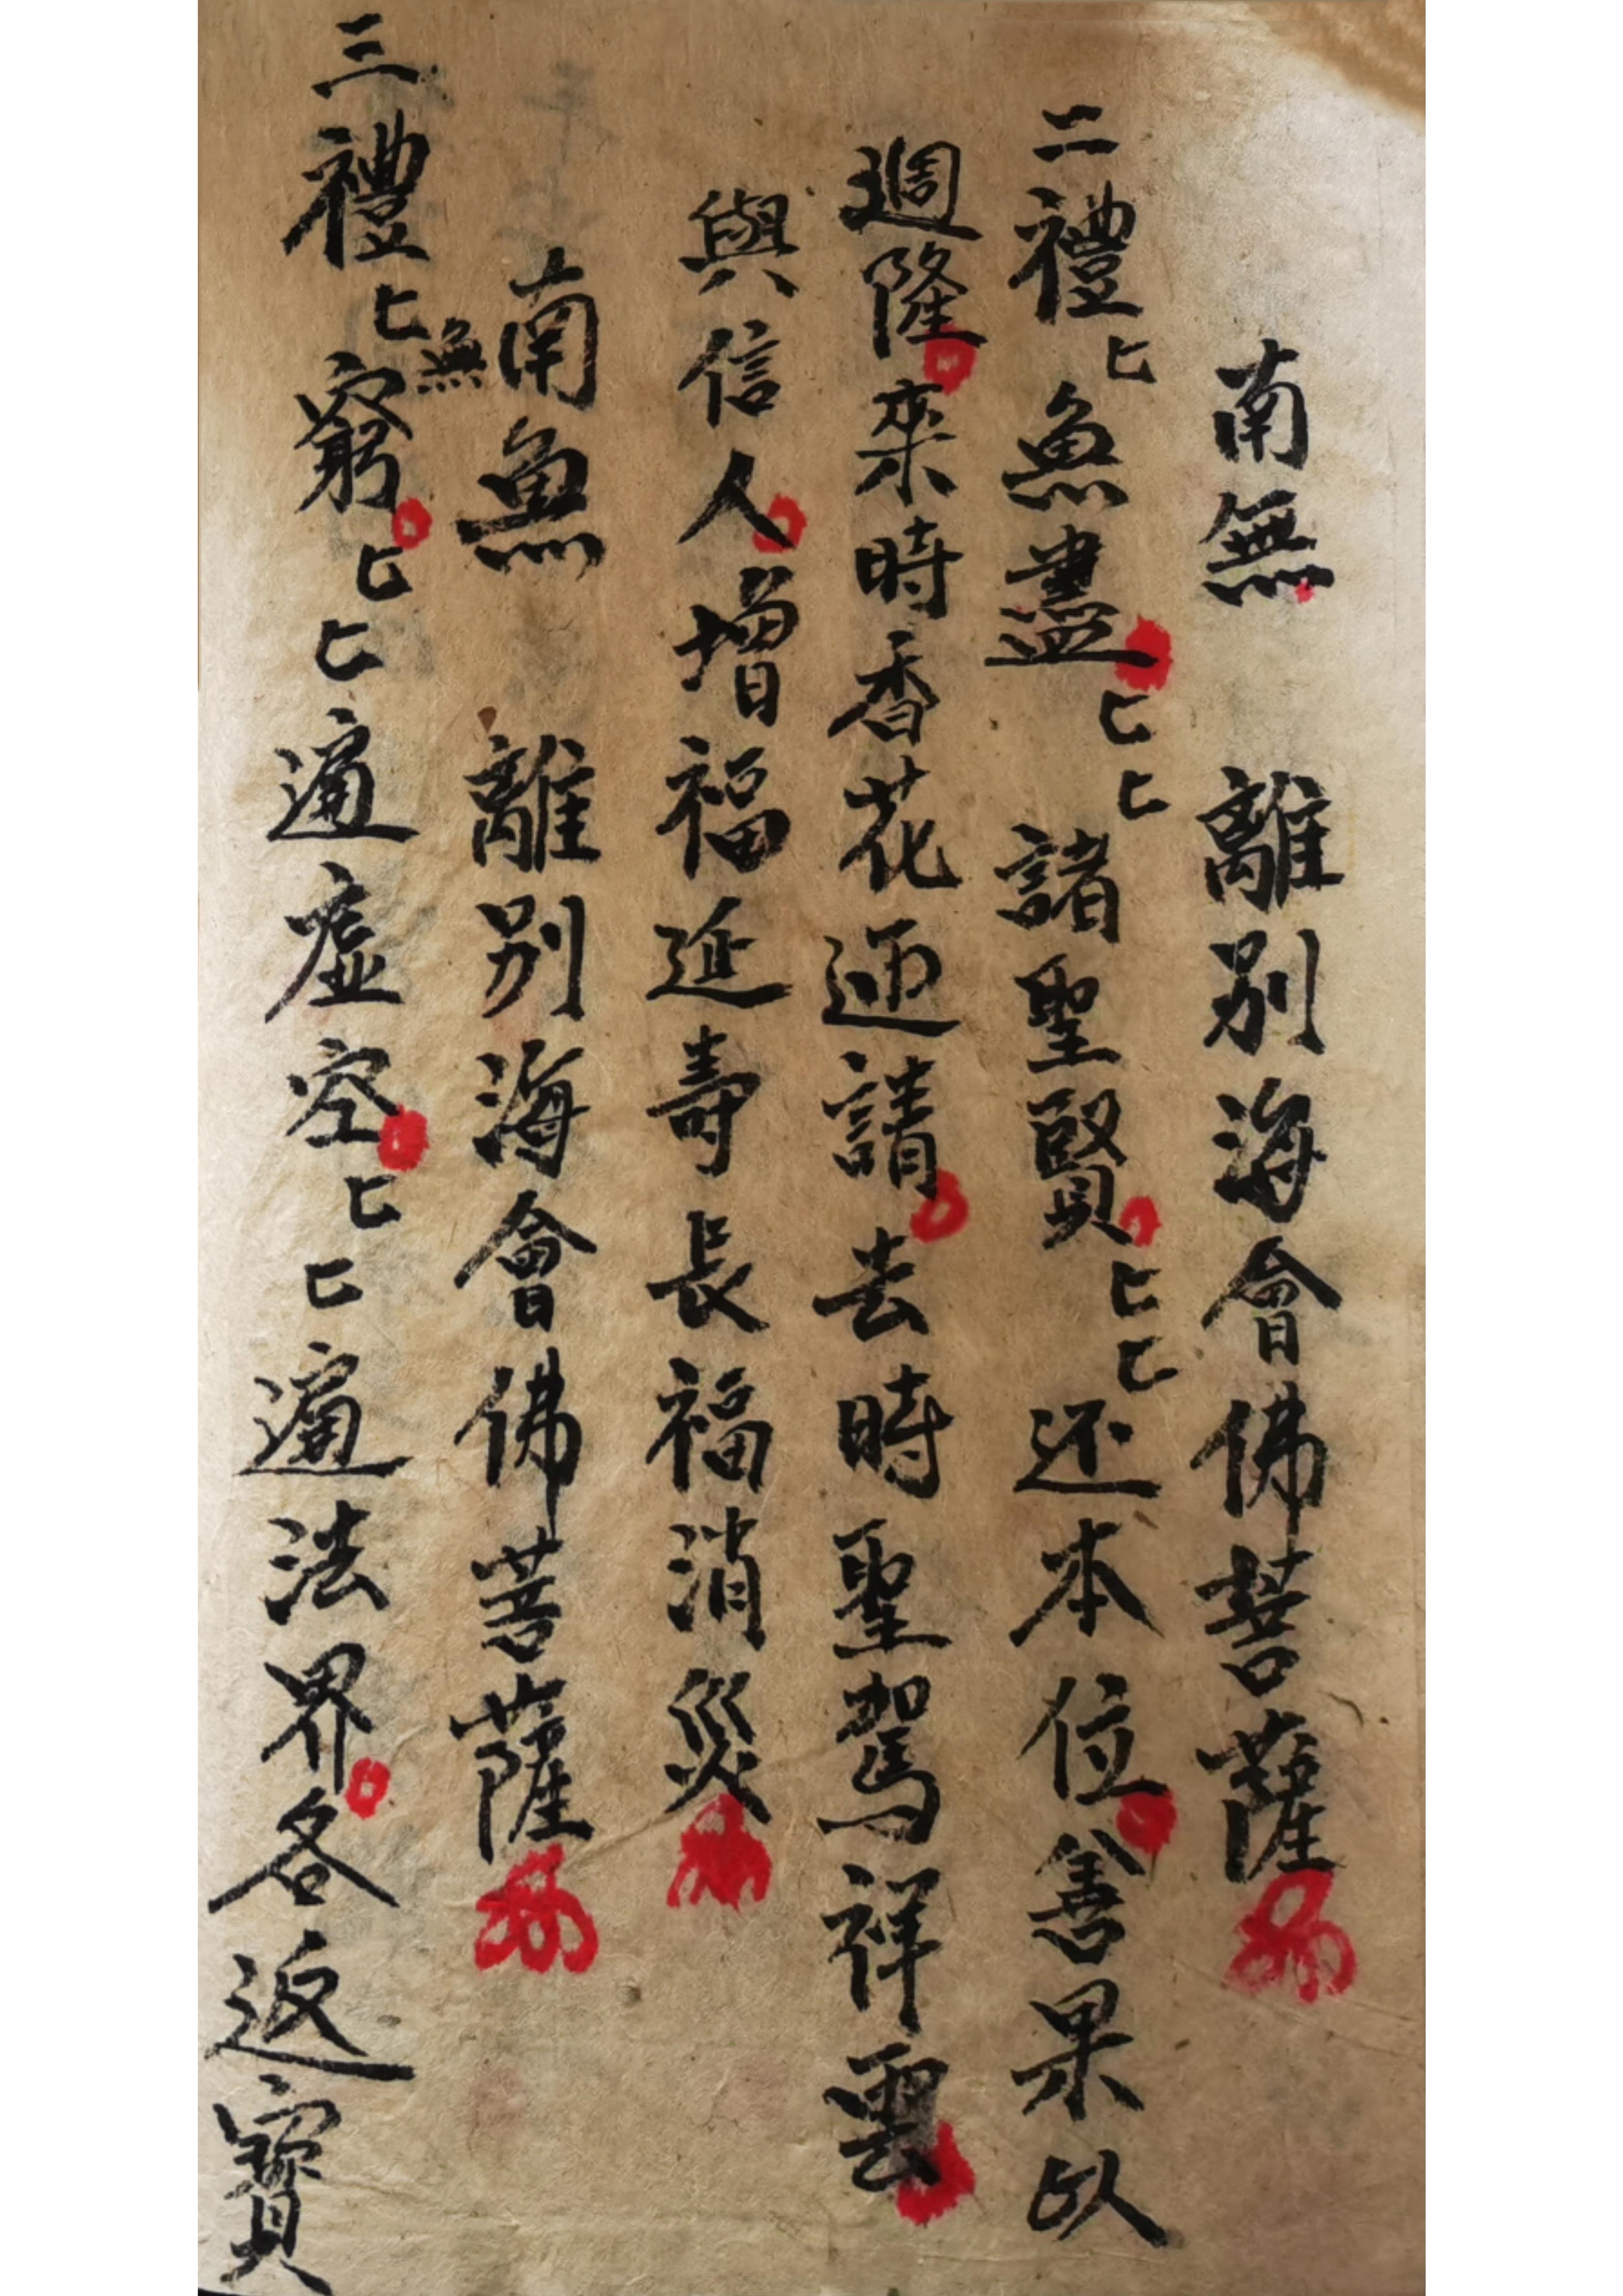 南無 離別海會佛菩薩
二禮匕無盡匕匕諸聖賢匕匕还本位善果以
週隆來時香花迎請去時聖駕祥雲
與信人增福延壽長福消災
南無 離別海會佛菩薩
無
三禮匕窮匕匕遍虛空匕匕遍法界各返寶